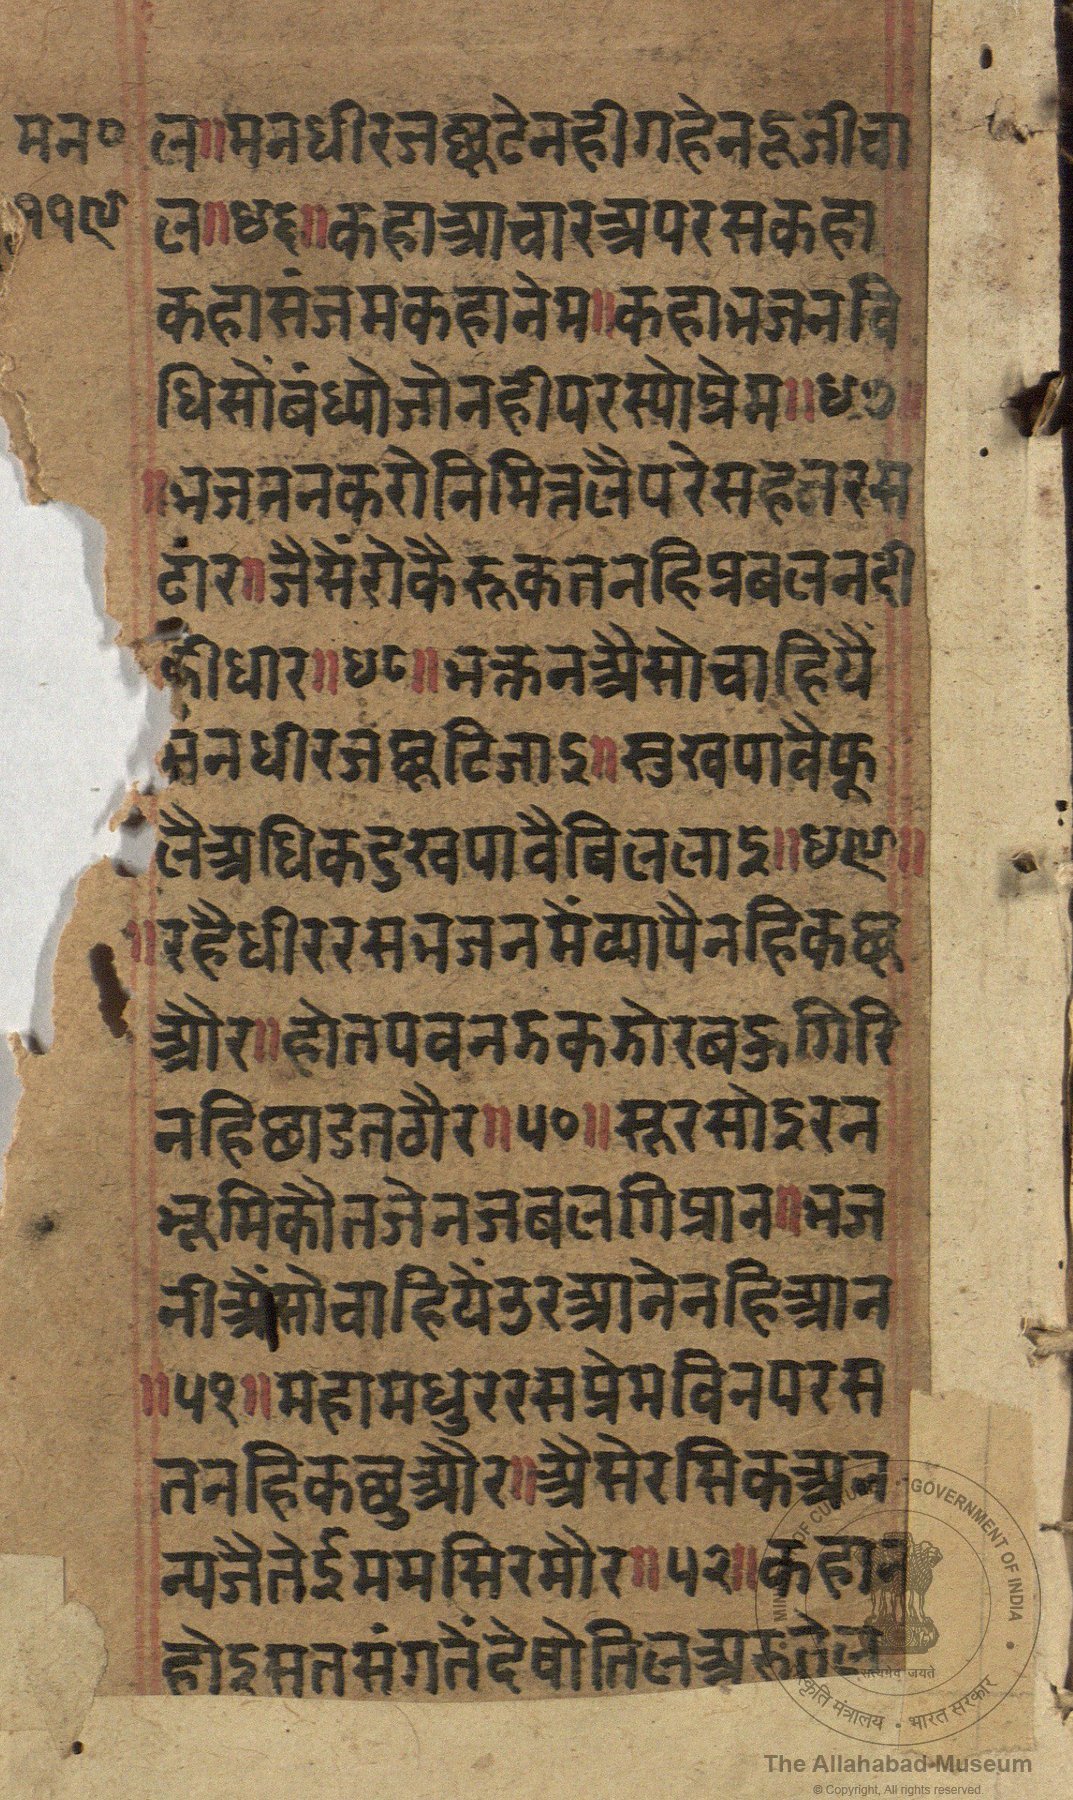 मन०
११९
ल॥मनधीरजछूटेनहीगहेनदूजीचा
ल॥४६॥कहाआचारअपरसकहा
कहासंजमकहानेम॥कहाभजनवि
धिसोंबंध्योजोनहीपरस्योप्रेम॥४७॥
॥भजननकरोनिमित्तलैपरेसहतरस
टार॥जैसेंरोकैरुकतनहिप्रबलनदी
कीधार॥४८॥भक्तनअैसोचाहियैं
मनधीरजछूटिजाइ॥सुखपावैफू
लैअधिकदुखपावैबिललाइ॥४९॥
॥रहैधीररसभजनमेंव्यापैनहिकछू
और॥होतपवनझकझोरबङगिरि
नहिछाडतठौर॥५०॥सूरसोइरन
भूमिकौतजेनजबलगिप्रान॥भज
नीअैंसोचाहियेंउरआनेनहिआन
॥५१॥महामधुररसप्रेमविनपरस
तनहिकछुऔर॥अैसेरसिकअन
न्यजैतेईममसिरमौर॥५२॥कहान
होइसतसंगतेंदेषोतिलअरुतेल
The Allahabad Museum
© Copyright, All rights reserved.
GOVERNMENT OF INDIA
सत्यमेव जयते
संस्कृति मंत्रालय • भारत सरकार